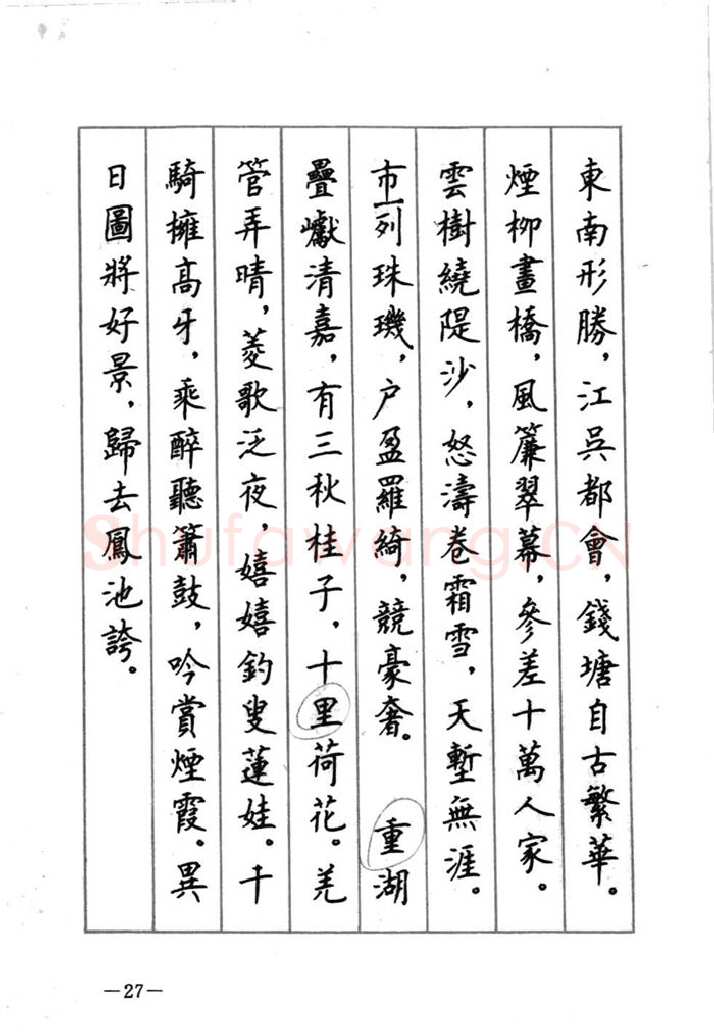 東南形勝，江吳都會，錢塘自古繁華。
煙柳畫橋，風簾翠幕，參差十萬人家。
雲樹繞隄沙，怒濤卷霜雪，天塹無涯。
市列珠璣，户盈羅綺，競豪奢。 重湖
疊巘清嘉，有三秋桂子，十里荷花。羌
管弄晴，菱歌泛夜，嬉嬉釣叟蓮娃。千
騎擁高牙，乘醉聽簫鼓，吟賞煙霞。異
日圖將好景，歸去鳳池誇。
Shufawang.CN
—27—